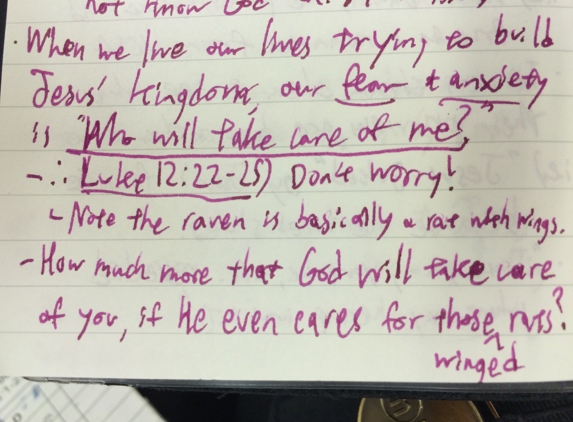 not know God
· When we live our lives trying to build
Jesus' kingdom, our fear & anxiety
is "Who will take care of me?"
- ∴ Luke 12:22-25) Don't worry!
└ Note the raven is basically a rat with wings.
- How much more that God will take care
of you, if He even cares for those ^ rats?
winged